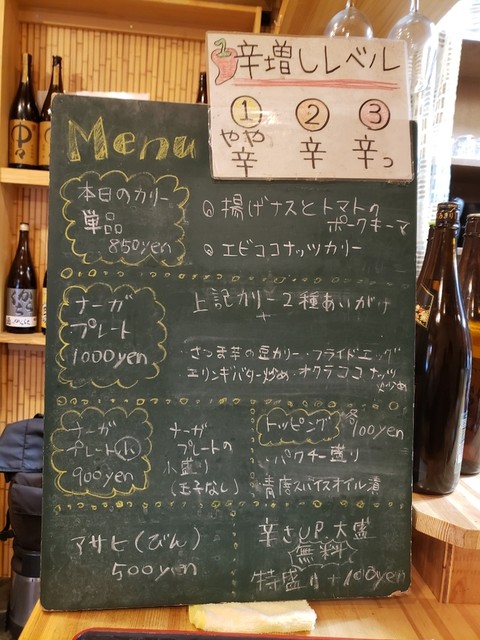 辛増しレベル
① ② ③
やや辛 辛 辛っ
Menu
本日のカリー
単品
850yen
揚げナスとトマトの
ポークキーマ
エビココナッツカリー
ナーガ
プレート
1000yen
上記カリー2種あいがけ
+
さつま芋の豆カリー・フライドエッグ
エリンギバター炒め・オクラココナッツ
炒め
ナーガ
プレート小
900yen
ナーガ
プレートの
小盛り
(玉子なし)
トッピング 各
100yen
パクチー盛り
青唐スパイスオイル漬
アサヒ(びん)
500yen
辛さUP、大盛
無料
特盛り+100yen